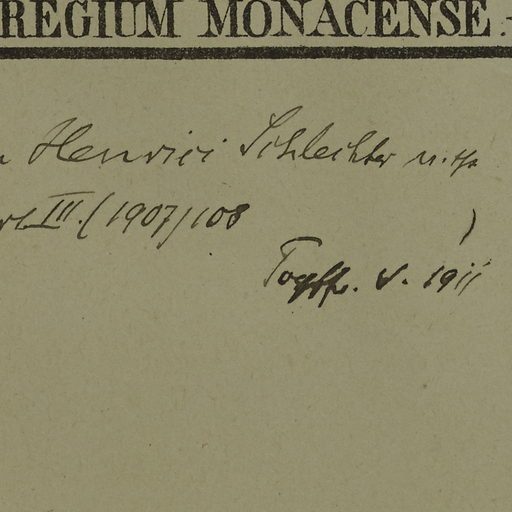 REGIUM MONACENSE.
Henrici Schlechter n. sp.
III. (1907) 108 )
V. 1911